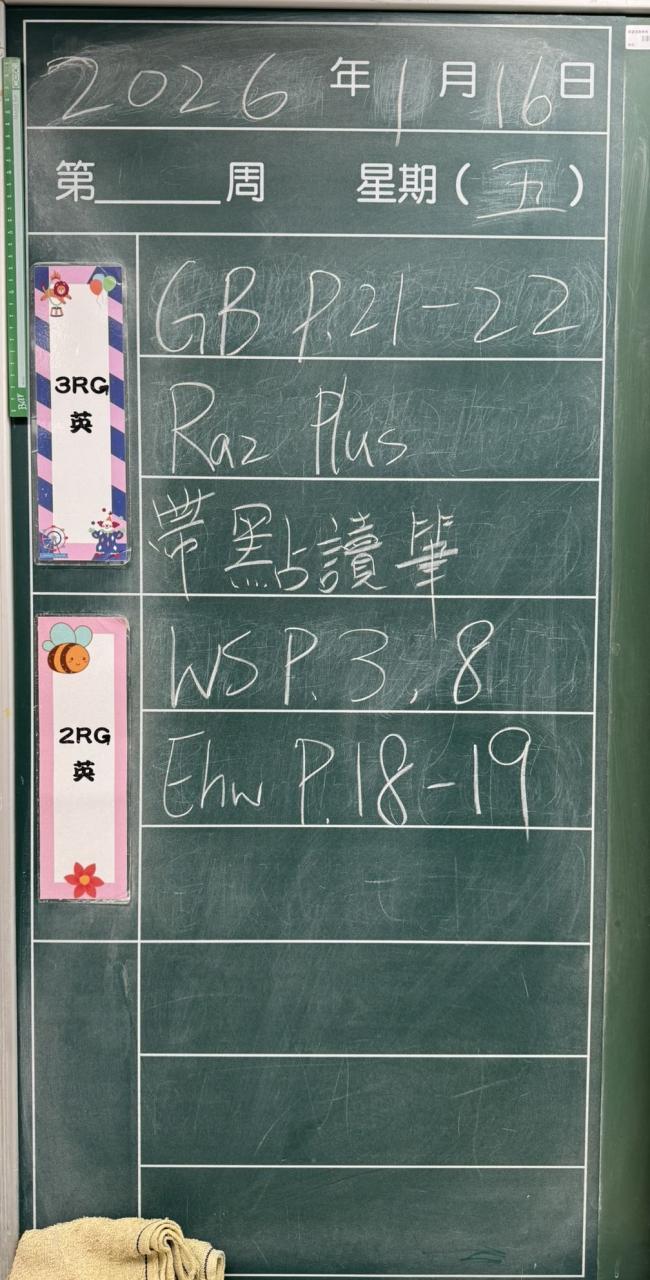 2026年1月16日
第______周 星期(五)
3RG
英
GB P.21-22
Raz Plus
帶點讀筆
2RG
英
WS P.3,8
Ehw P.18-19